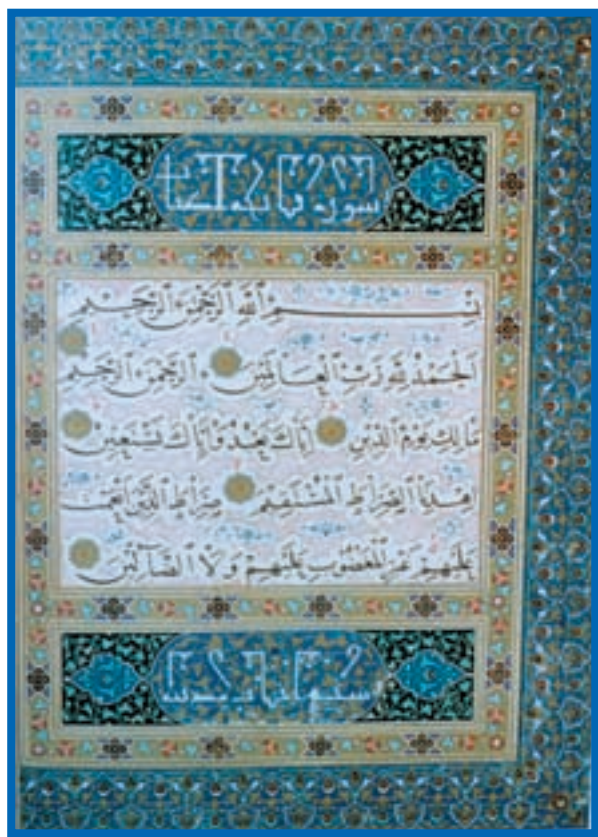 سورة فاتحة الكتاب
بسم الله الرحمن الرحيم
الحمد لله رب العالمين الرحمن الرحيم
مالك يوم الدين إياك نعبد وإياك نستعين
اهدنا الصراط المستقيم صراط الذين أنعمت
عليهم غير المغضوب عليهم ولا الضالين